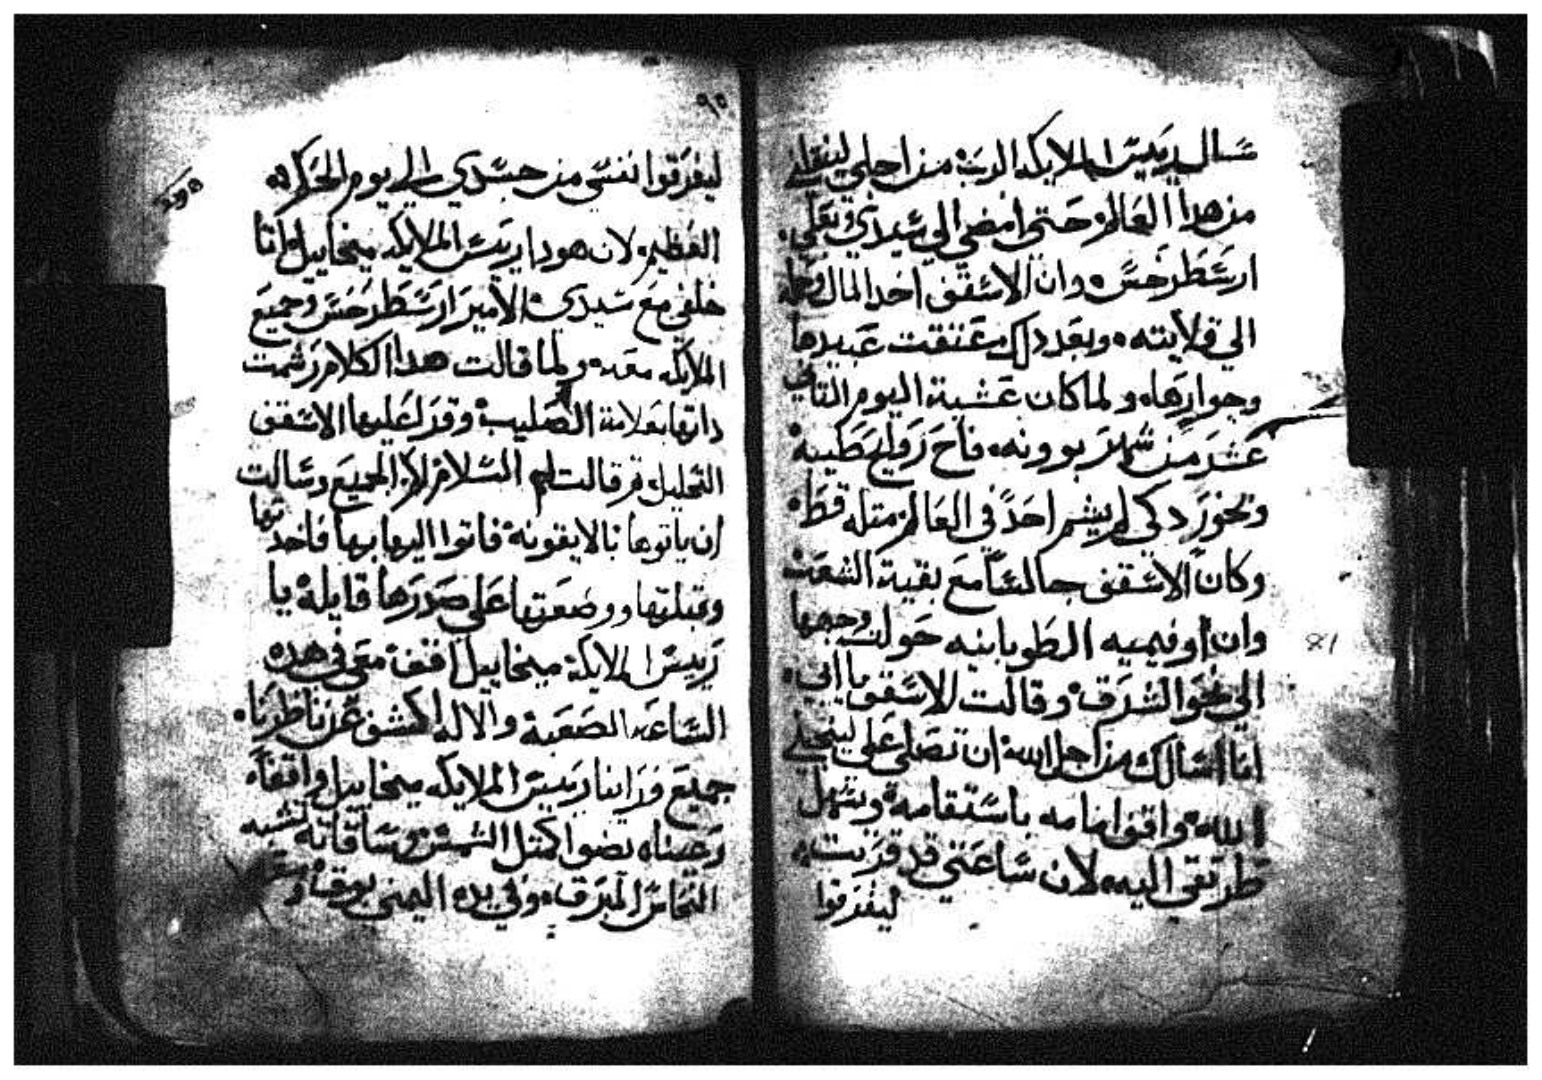 سال رييس الملايكه الرب من اجلي لينقلني
من هدا العالم حتي امضي الي سيدي وبعلي
ارسطرخس وان الاسقف اخد المال
الي قلايته وبعد دلك عتقت عبيدها
وجوارها ولما كان عشية اليوم التاني
عشر من شهر بوونه فاح روايح طيبه
وبخور دكي لم يشم احد في العالم مثله قط
وكان الاسقف جالسا مع بقية الشعب
وان اوفيميه الطوبانيه حولت وجهها
الي نحو الشرق وقالت للاسقف يا ابي
انا اسالك من اجل الله ان تصلي علي
الله واقف امامه باستقامه ويسهل
طريقي اليه لان ساعتي قد قربت
ليفرقوا
٩٥
ليفرقوا نفسي من جسدي الي يوم
العظيم لان هودا رييس الملايكه ميخاييل اتا
خلفي مع سيدي الامير ارسطرخس وجميع
الملايكه معه ولما قالت هدا الكلام رشمت
داتها بعلامة الصليب وقرا عليها الاسقف
التحليل قالت لهم السلام الجميع وسالت
ان ياتوها بالايقونه فاتوا اليها بها فاخدتها
وقبلتها ووضعتها علي صدرها قايله يا
رييس الملايكة ميخاييل اقف معي في هده
الساعه الصعبه والاله اكشف عن
جميع فراينا رييس الملايكه ميخاييل واقفا
وجناه يضوا كمثل الشمس وساقاته تشبه
النحاس المبرق وفي يده اليمني بوق
81